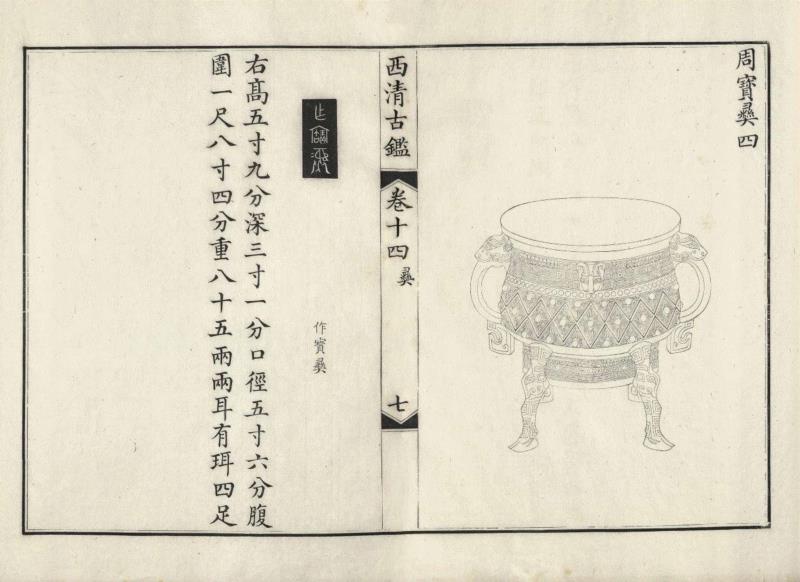 周寶彝四
西清古鑑
卷十四
彝
七
作寶彝
作寶彝
右髙五寸九分深三寸一分口徑五寸六分腹
圍一尺八寸四分重八十五兩兩耳有珥四足